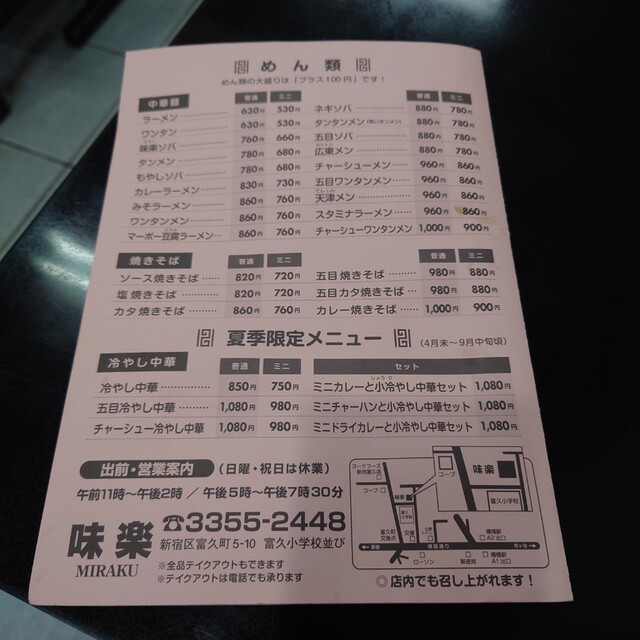 めん類
めん類の大盛りは「プラス100円」です！
中華麺 普通 ミニ
ラーメン 630円 530円
ワンタン 630円 530円
味楽ソバ 760円 660円
タンメン 780円 680円
もやしソバ 780円 680円
カレーラーメン 830円 730円
みそラーメン 860円 760円
ワンタンメン 860円 760円
マーボー豆腐ラーメン… 860円 760円
普通 ミニ
ネギソバ 880円 780円
タンタンメン(辛いタンメン) 880円 780円
五目ソバ 880円 780円
広東メン 880円 780円
チャーシューメン 960円 860円
五目ワンタンメン 960円 860円
天津メン 960円 860円
スタミナラーメン 960円 860円
チャーシューワンタンメン 1,000円 900円
焼きそば 普通 ミニ
ソース焼きそば 820円 720円
塩焼きそば 820円 720円
カタ焼きそば 860円 760円
普通 ミニ
五目焼きそば 980円 880円
五目カタ焼きそば 980円 880円
カレー焼きそば 1,000円 900円
夏季限定メニュー (4月末～9月中旬頃)
冷やし中華 普通 ミニ
冷やし中華 850円 750円
五目冷やし中華 1,080円 980円
チャーシュー冷やし中華 1,080円 980円
セット
ミニカレーと小冷やし中華セット 1,080円
ミニチャーハンと小冷やし中華セット 1,080円
ミニドライカレーと小冷やし中華セット 1,080円
出前・営業案内 (日曜・祝日は休業)
午前11時～午後2時 ／ 午後5時～午後7時30分
味楽
MIRAKU
☎3355-2448
新宿区富久町5-10 富久小学校並び
※全品テイクアウトもできます
※テイクアウトは電話でも承ります
コープ
味楽
富久小学校
コープ
富久町
交差点
交番
ローソン
郵便局
曙橋駅
A2出口
曙橋駅
A1出口
◎店内でも召し上がれます！